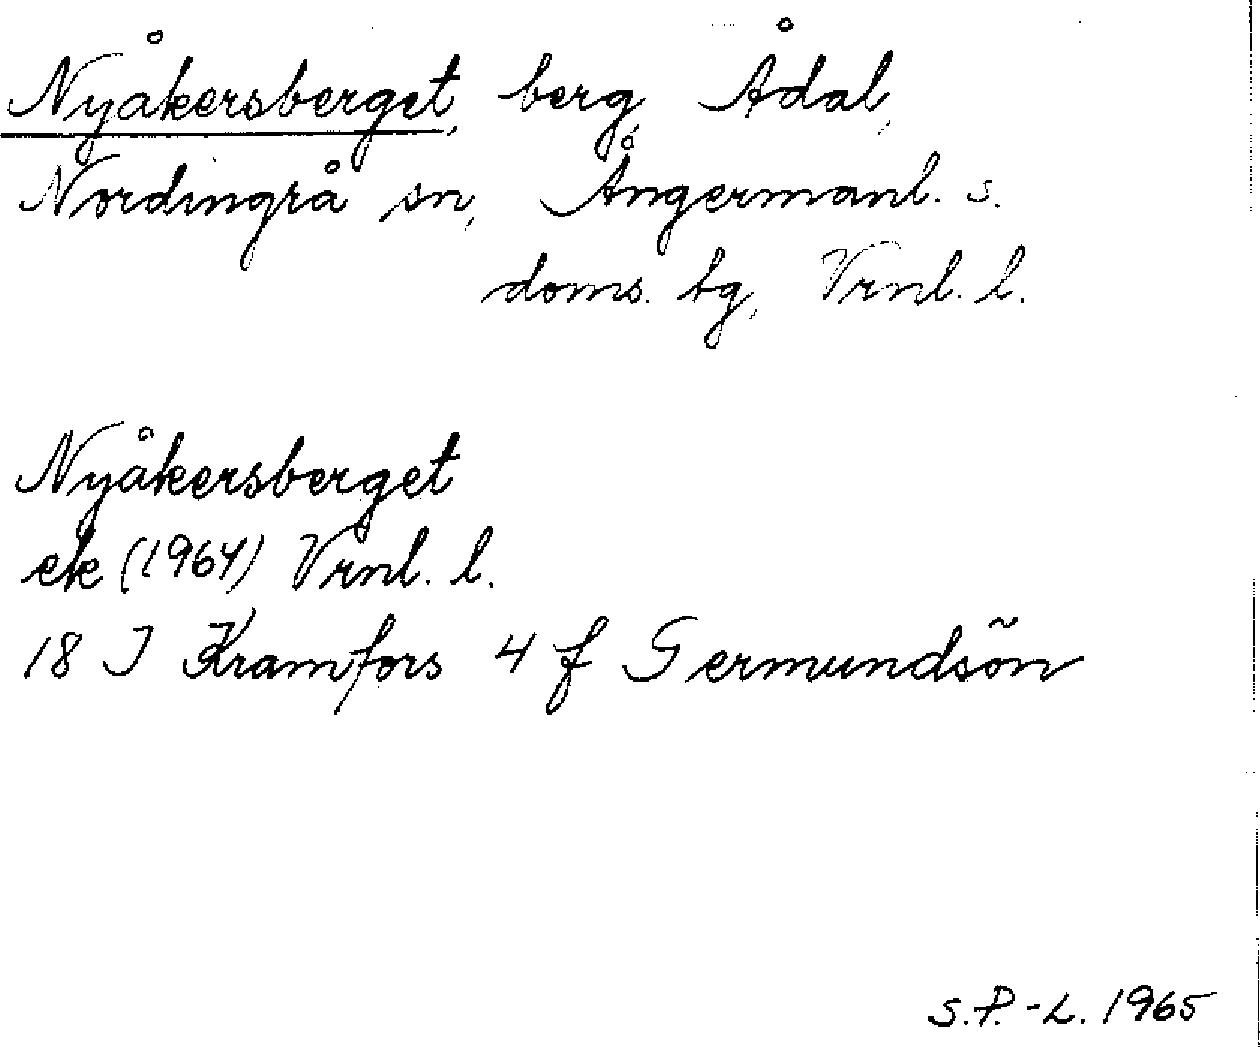 Nyåkersberget, berg, Ådal,
Nordingrå sn, Ångermanl. s.
doms. bg, Vrnl. l.
Nyåkersberget
ek (1964) Vrnl. l.
18 I Kramfors 4 f Germundsön
S.P.-L. 1965